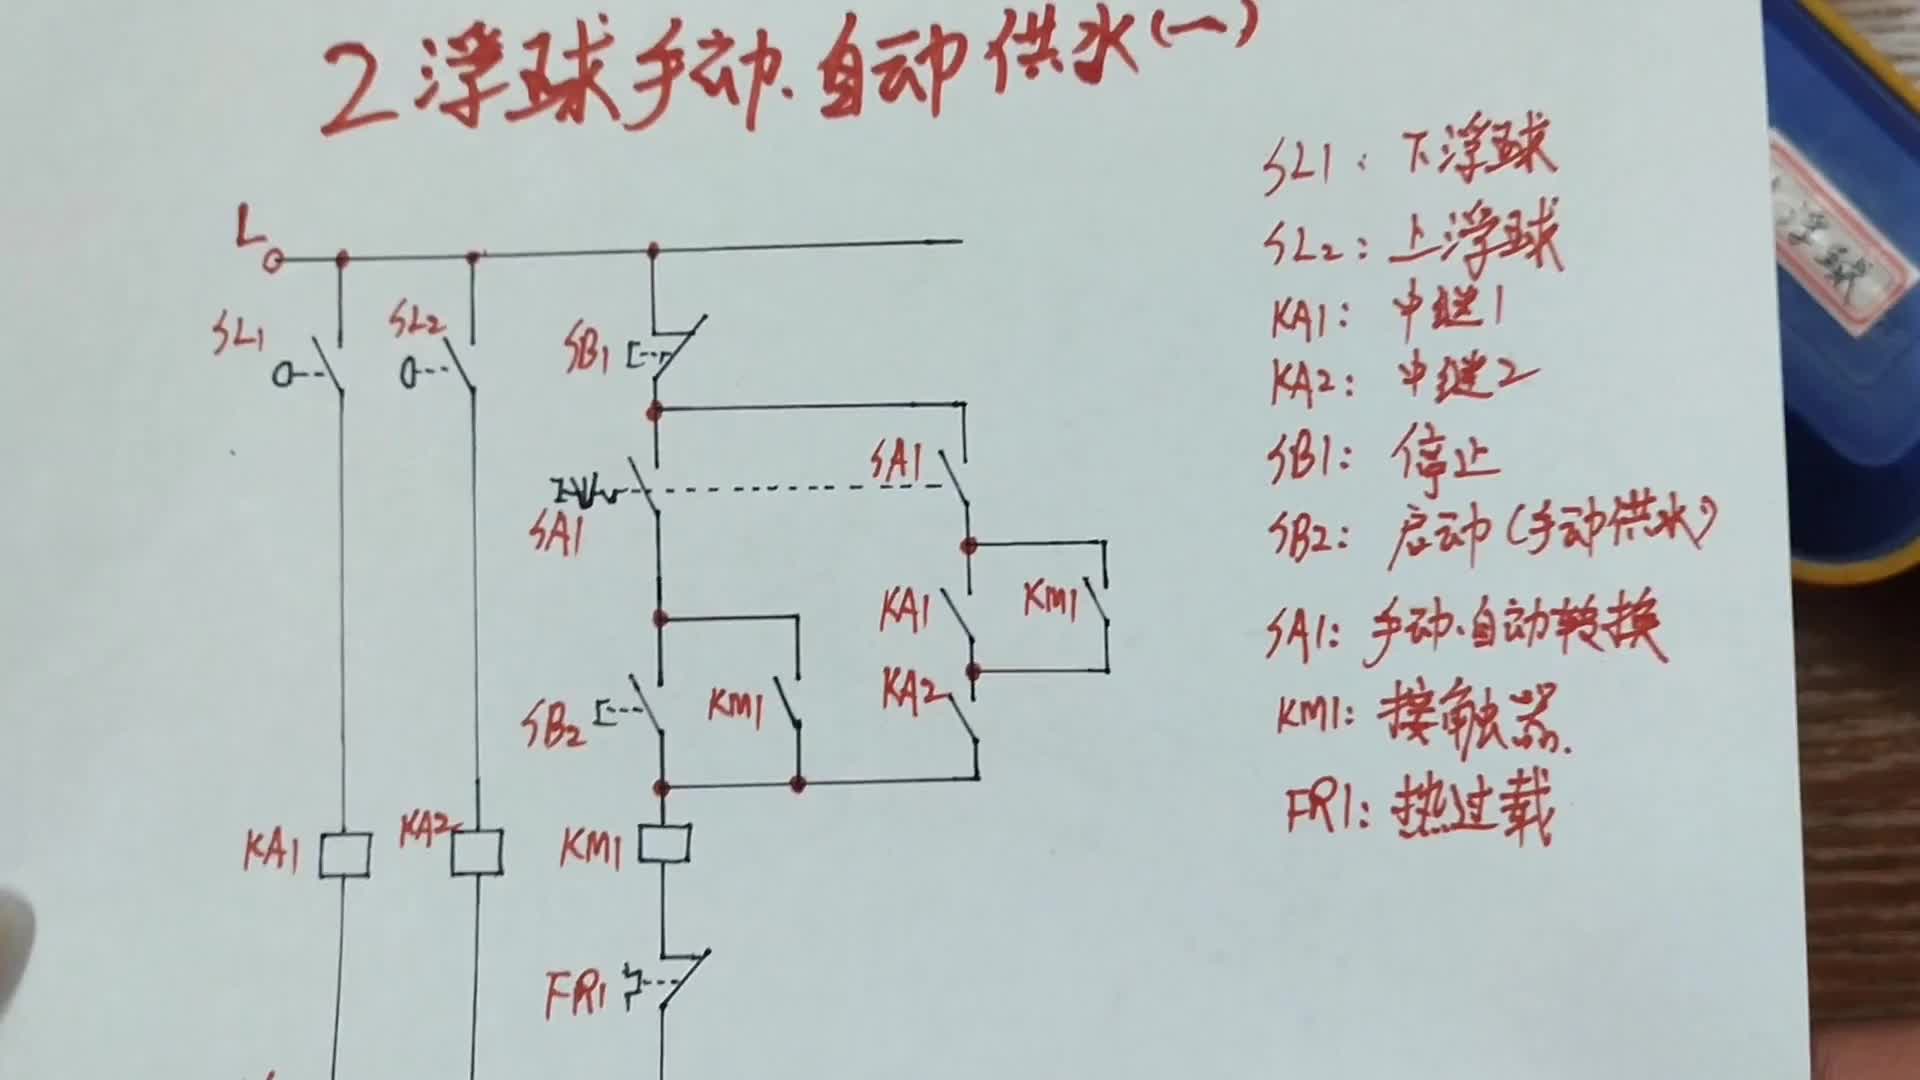 2 浮球手动.自动供水(一)
L
SL1
SL2
SB1
SA1
SA1
KA1
KM1
SB2
KM1
KA2
KA1
KA2
KM1
FR1
SL1: 下浮球
SL2: 上浮球
KA1: 中继1
KA2: 中继2
SB1: 停止
SB2: 启动(手动供水)
SA1: 手动.自动转换
KM1: 接触器.
FR1: 热过载
浮球